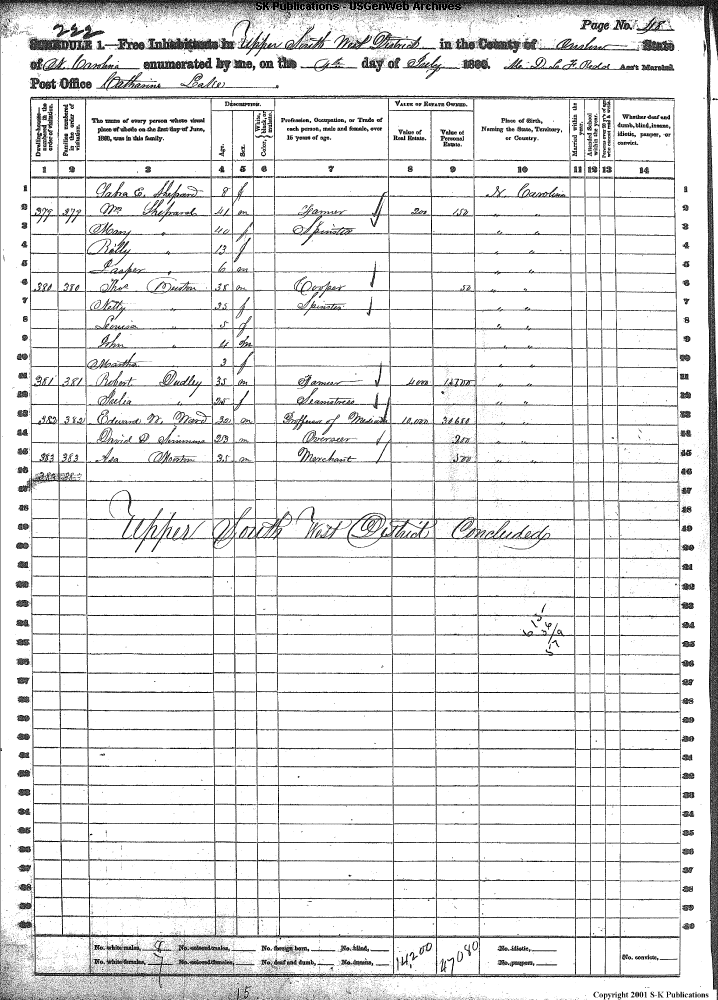 SK Publications - USGenWeb Archives
222
Page No. 48
SCHEDULE 1.—Free Inhabitants in Upper South West District in the County of Onslow State
of N. Carolina enumerated by me, on the day of July 1860. Ass't Marshal.
Post Office Catharine Lake
Dwelling-houses—numbered in the order of visitation.
Families numbered in the order of visitation.
The name of every person whose usual place of abode on the first day of June, 1860, was in this family.
DESCRIPTION.
Age.
Sex.
Color, White, black, or mulatto.
Profession, Occupation, or Trade of each person, male and female, over 15 years of age.
VALUE OF ESTATE OWNED.
Value of Real Estate.
Value of Personal Estate.
Place of Birth, Naming the State, Territory, or Country.
Married within the year.
Attended School within the year.
Whether deaf and dumb, blind, insane, idiotic, pauper, or convict.
1 2 3 4 5 6 7 8 9 10 11 12 13 14
1 E. Shepard 8 f N. Carolina 1
2 379 379 Wm Shepard 41 m Farmer 200 150 " " 2
3 Mary " 40 f Spinster " " 3
4 " 13 f " " 4
5 Jasper " 6 m 5
6 380 380 Thos 38 m Cooper 50 " " 6
7 Netty " 35 f Spinster " " 7
8 Louisa " 5 f " " 8
9 John " 4 m " " 9
10 Martha 3 f 10
11 381 381 Robert Dudley 35 m Farmer 4000 " " 11
12 Julia " 25 f Seamstress " " 12
13 382 382 Edward W. Ward 30 m of Medicine 10,000 30680 " " 13
14 David D Simmons 23 m Overseer 200 " " 14
15 383 383 Asa 35 m Merchant 500 " " 15
16
17
18
19 Upper South West District Concluded 19
20 20
21 21
22 22
23 23
24 24
25 25
26 26
27 27
28 28
29 29
30 30
31 31
32 32
33 33
34 34
35 35
36 36
37 37
38 38
39 39
40 40
No. white males, 8 No. colored males, No. foreign born, No. blind, 14200 47080 No. idiotic, No. convicts,
No. white females, 7 No. colored females, No. deaf and dumb, No. insane, No. paupers,
15
Copyright 2001 S-K Publications